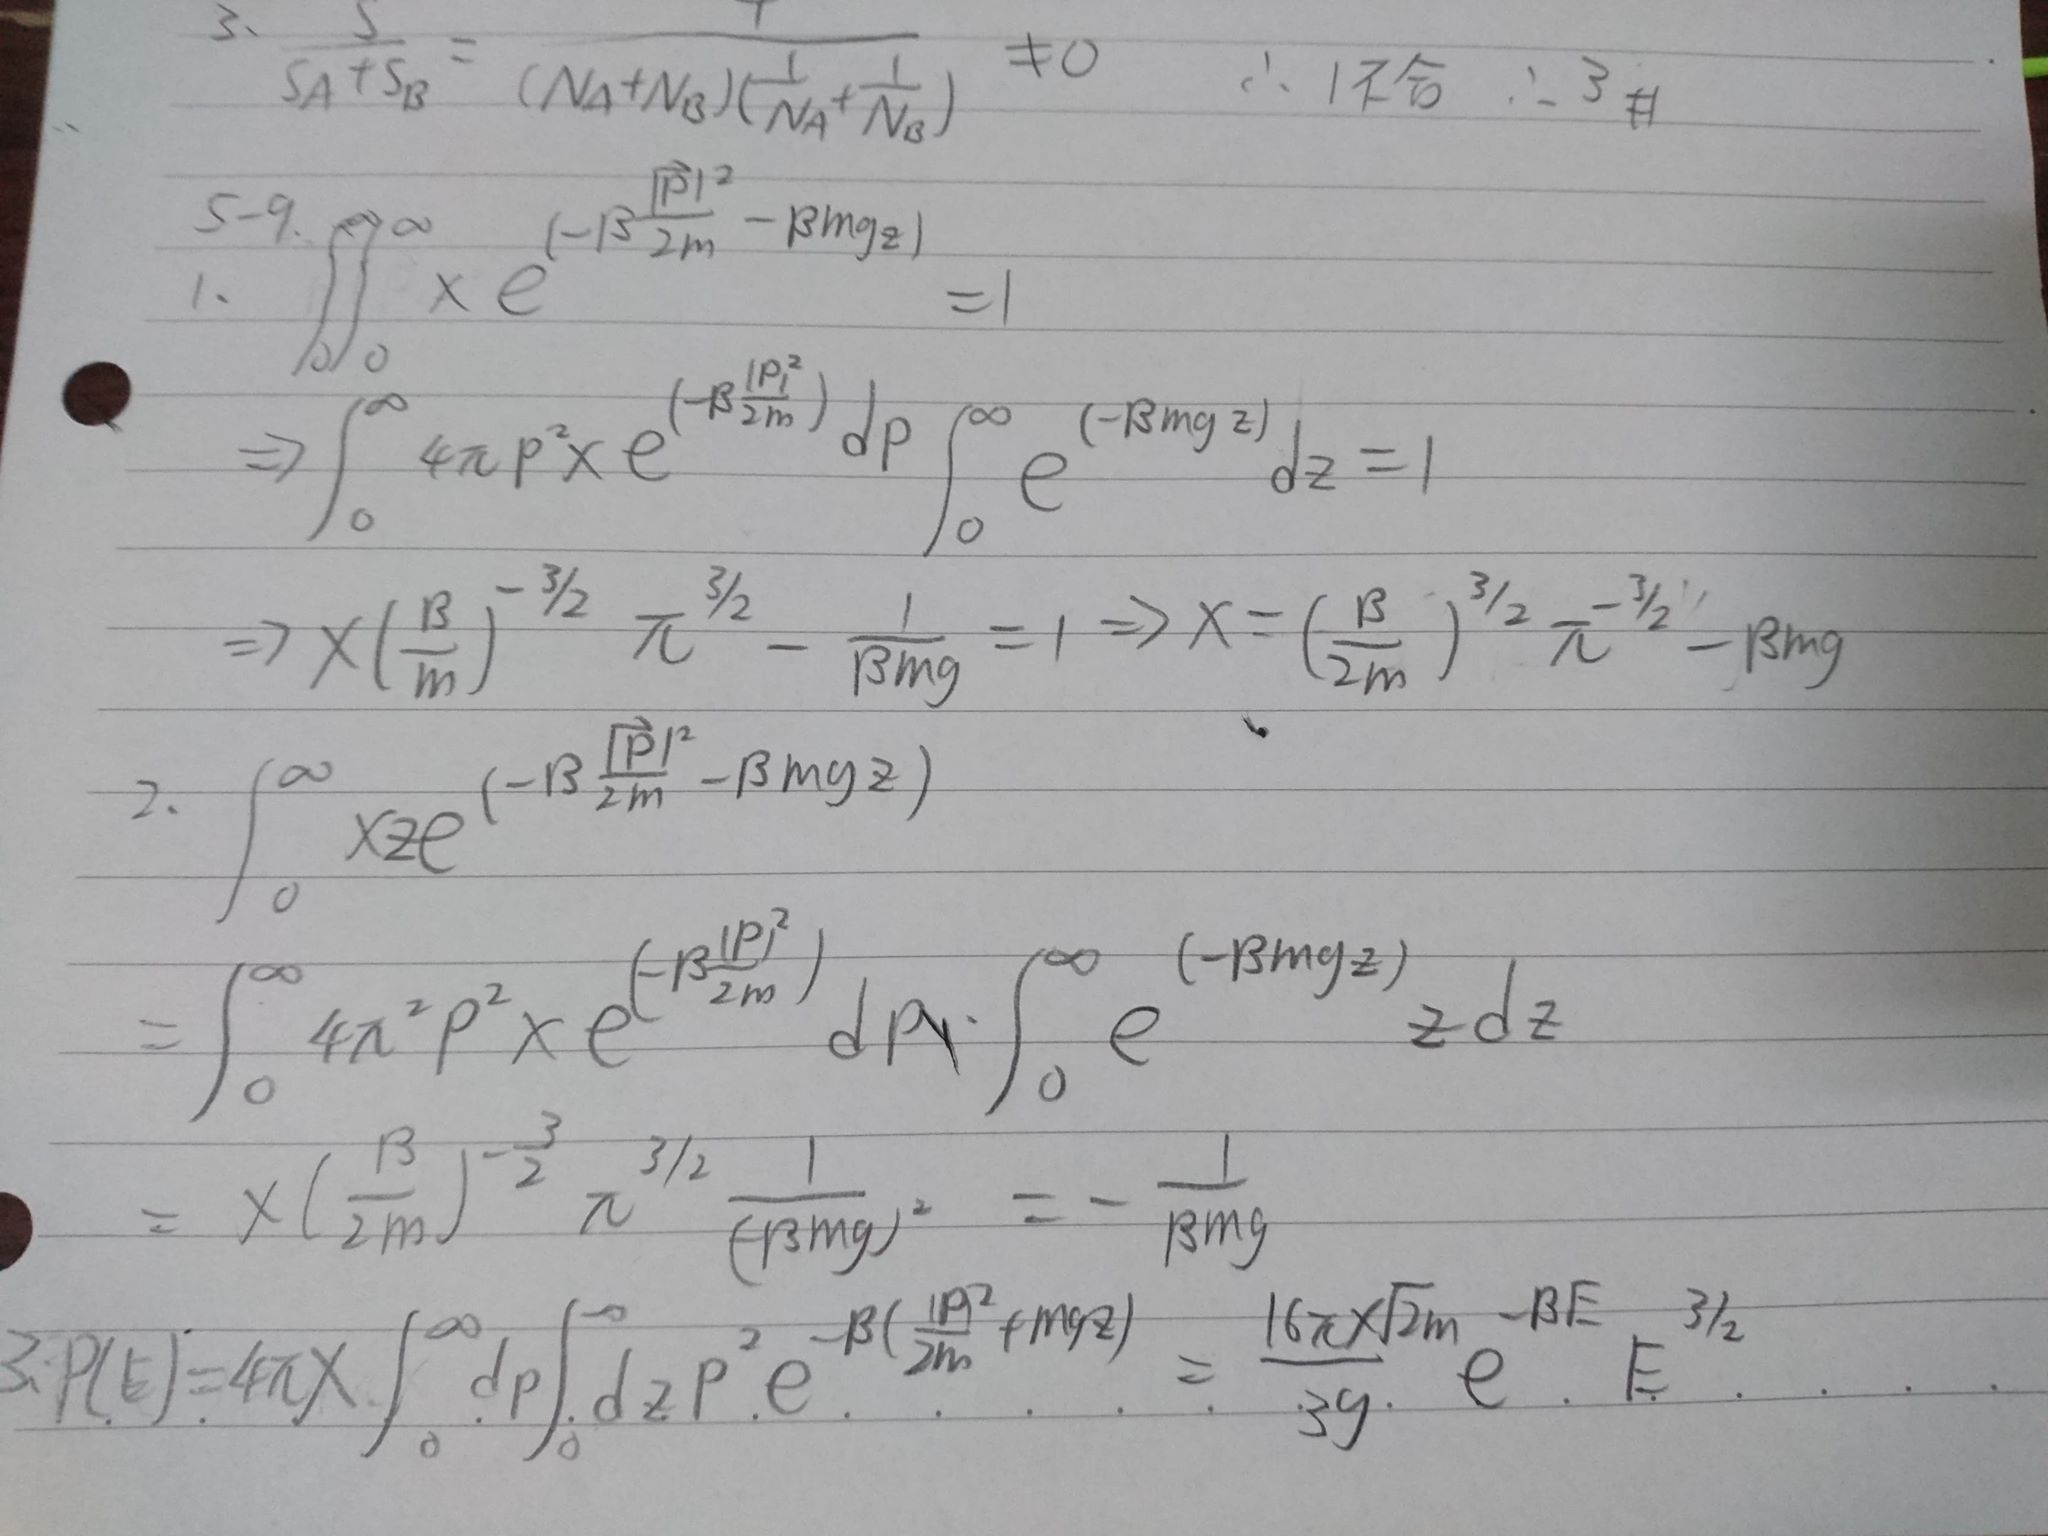 3. S/(S_A+S_B) = 1/((N_A+N_B)(1/N_A+1/N_B)) ≠0 ∴ 1不合 ∴ 3 #
5-9.
1. ∫₀^∞∫₀^∞ x e^(-β|p⃗|²/2m - βmgz) =1
=> ∫₀^∞ 4πp²x e^(-β|p|²/2m) dp ∫₀^∞ e^(-βmgz) dz = 1
=> x(β/m)^(-3/2) π^(3/2) - 1/βmg = 1 => x = (β/2m)^(3/2) π^(-3/2) - βmg
2. ∫₀^∞ xze^(-β|p⃗|²/2m - βmgz)
= ∫₀^∞ 4π²p²x e^(-β|p|²/2m) dp · ∫₀^∞ e^(-βmgz) z dz
= x(β/2m)^(-3/2) π^(3/2) 1/(-βmg)² = - 1/βmg
3. P(E) = 4πx ∫₀^∞ dp ∫₀^∞ dz p² e^-β(|p|²/2m + mgz) = 16πx√2m/3g e^-βE E^3/2